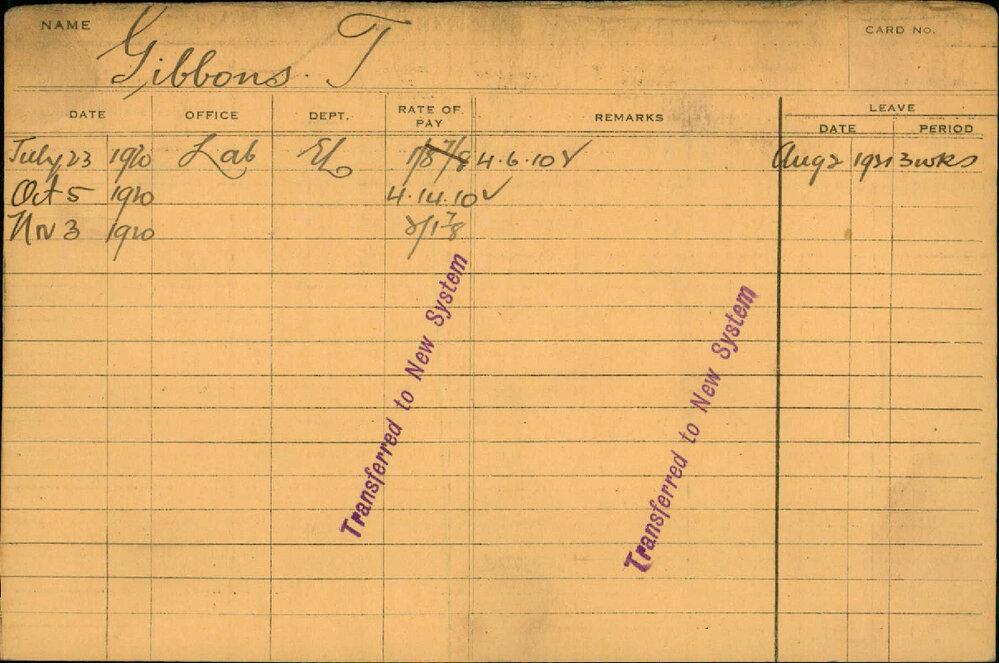 NAME Gibbons. T CARD NO.
DATE OFFICE DEPT. RATE OF PAY REMARKS LEAVE
DATE PERIOD
July 23 1920 Lab EL 1/8 7/8 4.6.10 ✓ Aug 2 1921 3 wks
Oct 5 1920 4.14.10 ✓
Nov 3 1920 2/1 7/8
Transferred to New System
Transferred to New System